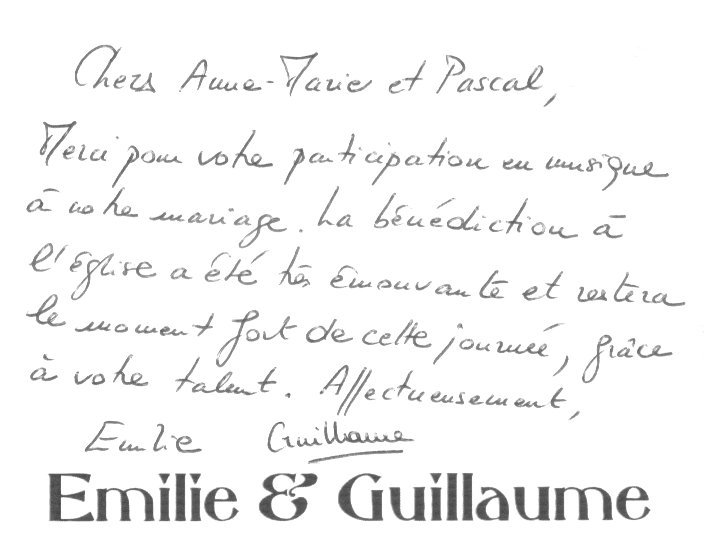 Chers Anne-Marie et Pascal,
Merci pour votre participation en musique
à notre mariage. La bénédiction à
l'église a été très émouvante et restera
le moment fort de cette journée, grâce
à votre talent. Affectueusement,
Emilie Guillaume
Emilie & Guillaume